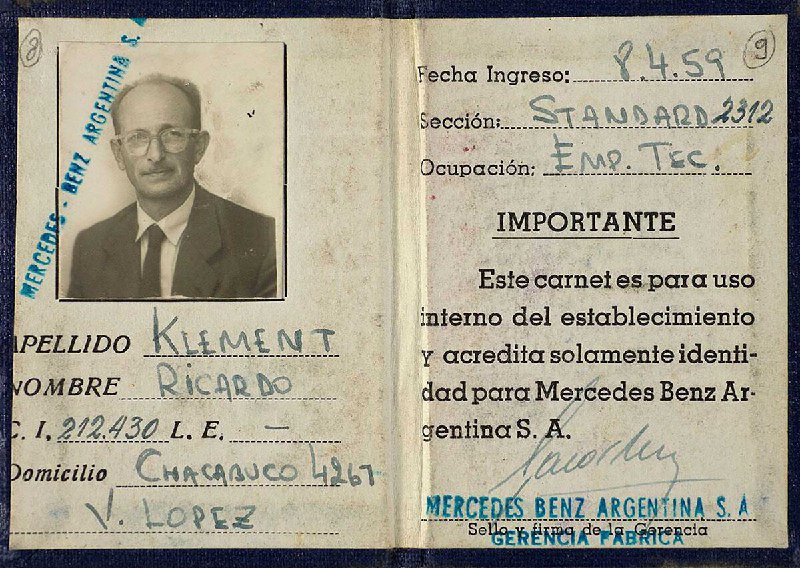 8
MERCEDES - BENZ ARGENTINA S. A.
APELLIDO KLEMENT
NOMBRE RICARDO
C. I. 212.430 L. E. —
Domicilio CHACABUCO 4261
V. LOPEZ
9
Fecha Ingreso: 8.4.59
Sección: STANDARD 2312
Ocupación: EMP. TEC.
IMPORTANTE
Este carnet es para uso
interno del establecimiento
y acredita solamente identi-
dad para Mercedes Benz Ar-
gentina S. A.
MERCEDES BENZ ARGENTINA S. A
Sello y firma de la Gerencia
GERENCIA FABRICA